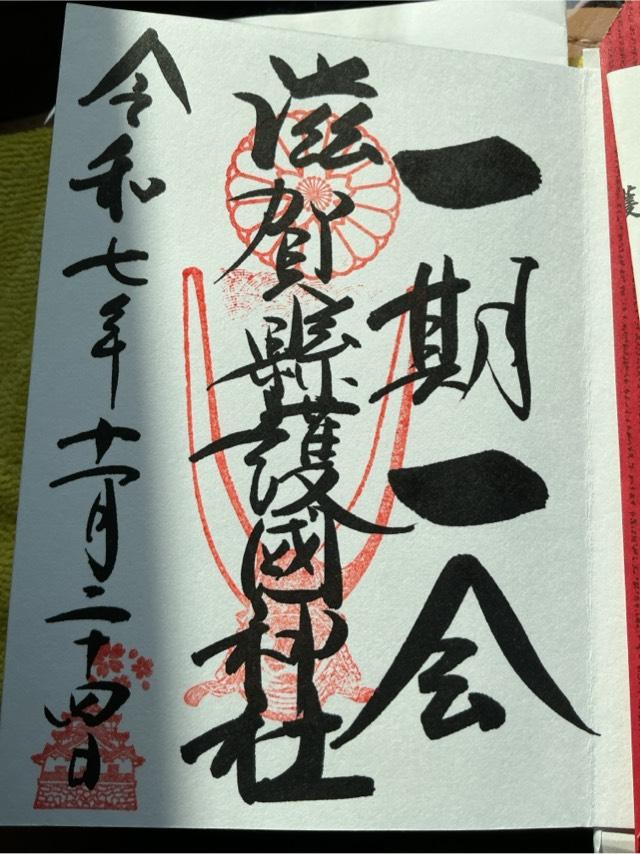 一期一会
滋賀縣護國神社
令和七年十一月二十四日